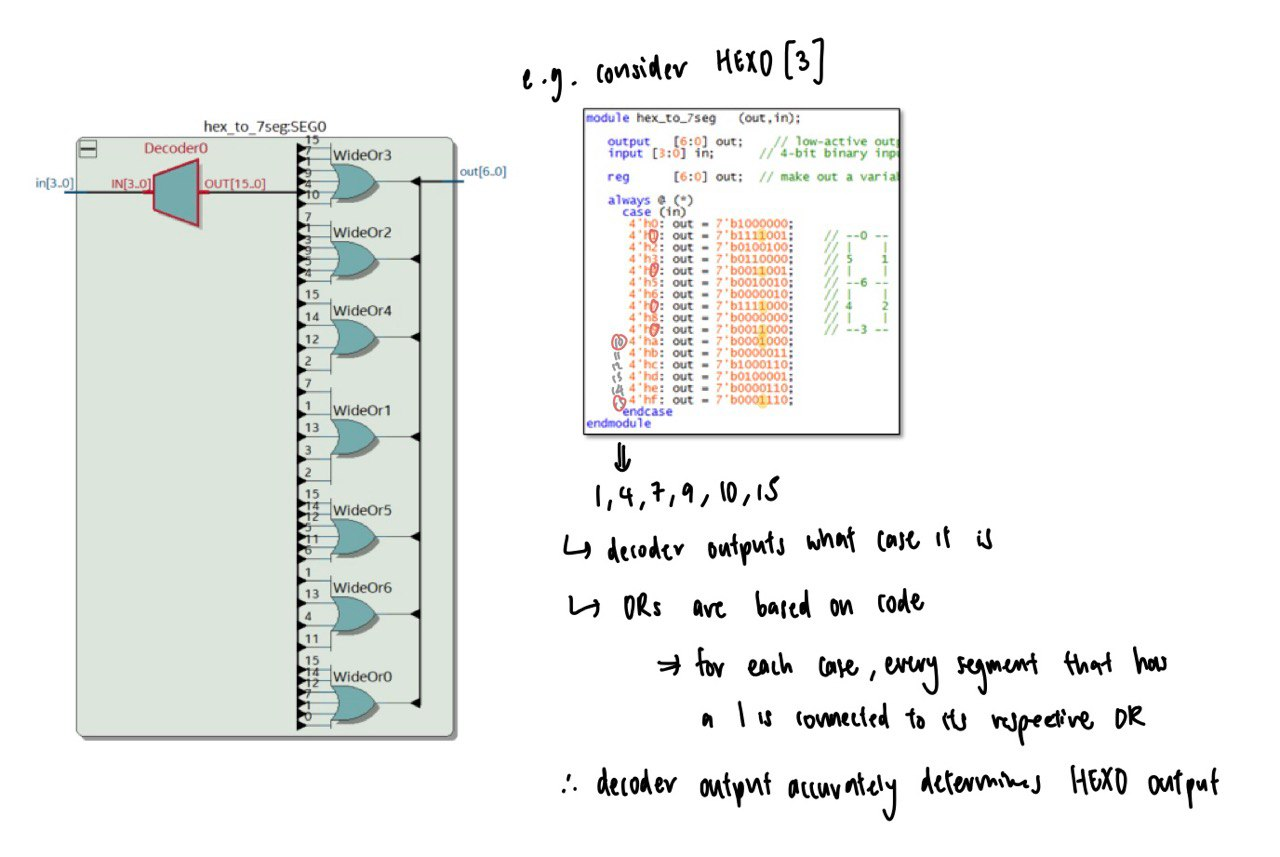 e.g. consider HEX0 [3]
hex_to_7seg:SEG0
Decoder0
in[3..0]
IN[3..0]
OUT[15..0]
out[6..0]
15
7
1
9
4
10
WideOr3
7
1
3
9
5
4
WideOr2
15
14
12
2
WideOr4
7
1
13
3
2
WideOr1
15
14
12
5
11
6
WideOr5
1
13
4
11
WideOr6
15
14
12
7
1
0
WideOr0
module hex_to_7seg (out,in);
output [6:0] out; // low-active outp
input [3:0] in; // 4-bit binary inpu
reg [6:0] out; // make out a varia
always @ (*)
case (in)
4'h0: out = 7'b1000000;
4'h1: out = 7'b1111001; // --0 --
4'h2: out = 7'b0100100; // | |
4'h3: out = 7'b0110000; // 5 1
4'h4: out = 7'b0011001; // | |
4'h5: out = 7'b0010010; // --6 --
4'h6: out = 7'b0000010; // | |
4'h7: out = 7'b1111000; // 4 2
4'h8: out = 7'b0000000; // | |
4'h9: out = 7'b0011000; // --3 --
10 4'ha: out = 7'b0001000;
11 4'hb: out = 7'b0000011;
12 4'hc: out = 7'b1000110;
13 4'hd: out = 7'b0100001;
14 4'he: out = 7'b0000110;
15 4'hf: out = 7'b0001110;
endcase
endmodule
⇓
1, 4, 7, 9, 10, 15
↳ decoder outputs what case it is
↳ ORs are based on code
⇒ for each case, every segment that has
a 1 is connected to its respective OR
∴ decoder output accurately determines HEX0 output